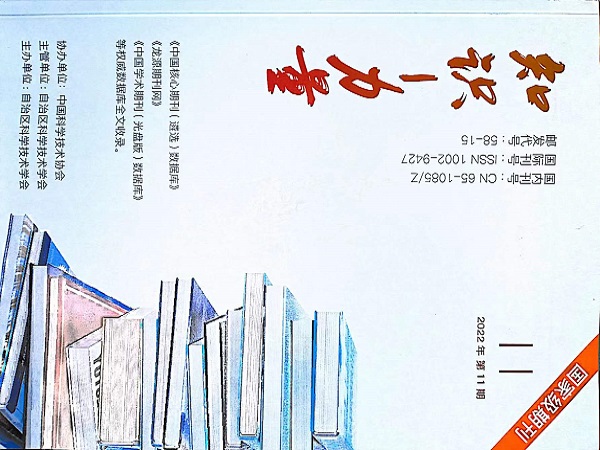 国家级期刊
2022年 第11期
11
知识—力量
国内刊号：CN 65-1085/Z
国际刊号：ISSN 1002-9427
邮发代号：58-15
《中国核心期刊（遴选）数据库》
《龙源期刊网》
《中国学术期刊（光盘版）数据库》
等权威数据库全文收录。
协办单位：中国科学技术协会
主管单位：自治区科学技术学会
主办单位：自治区科学技术学会